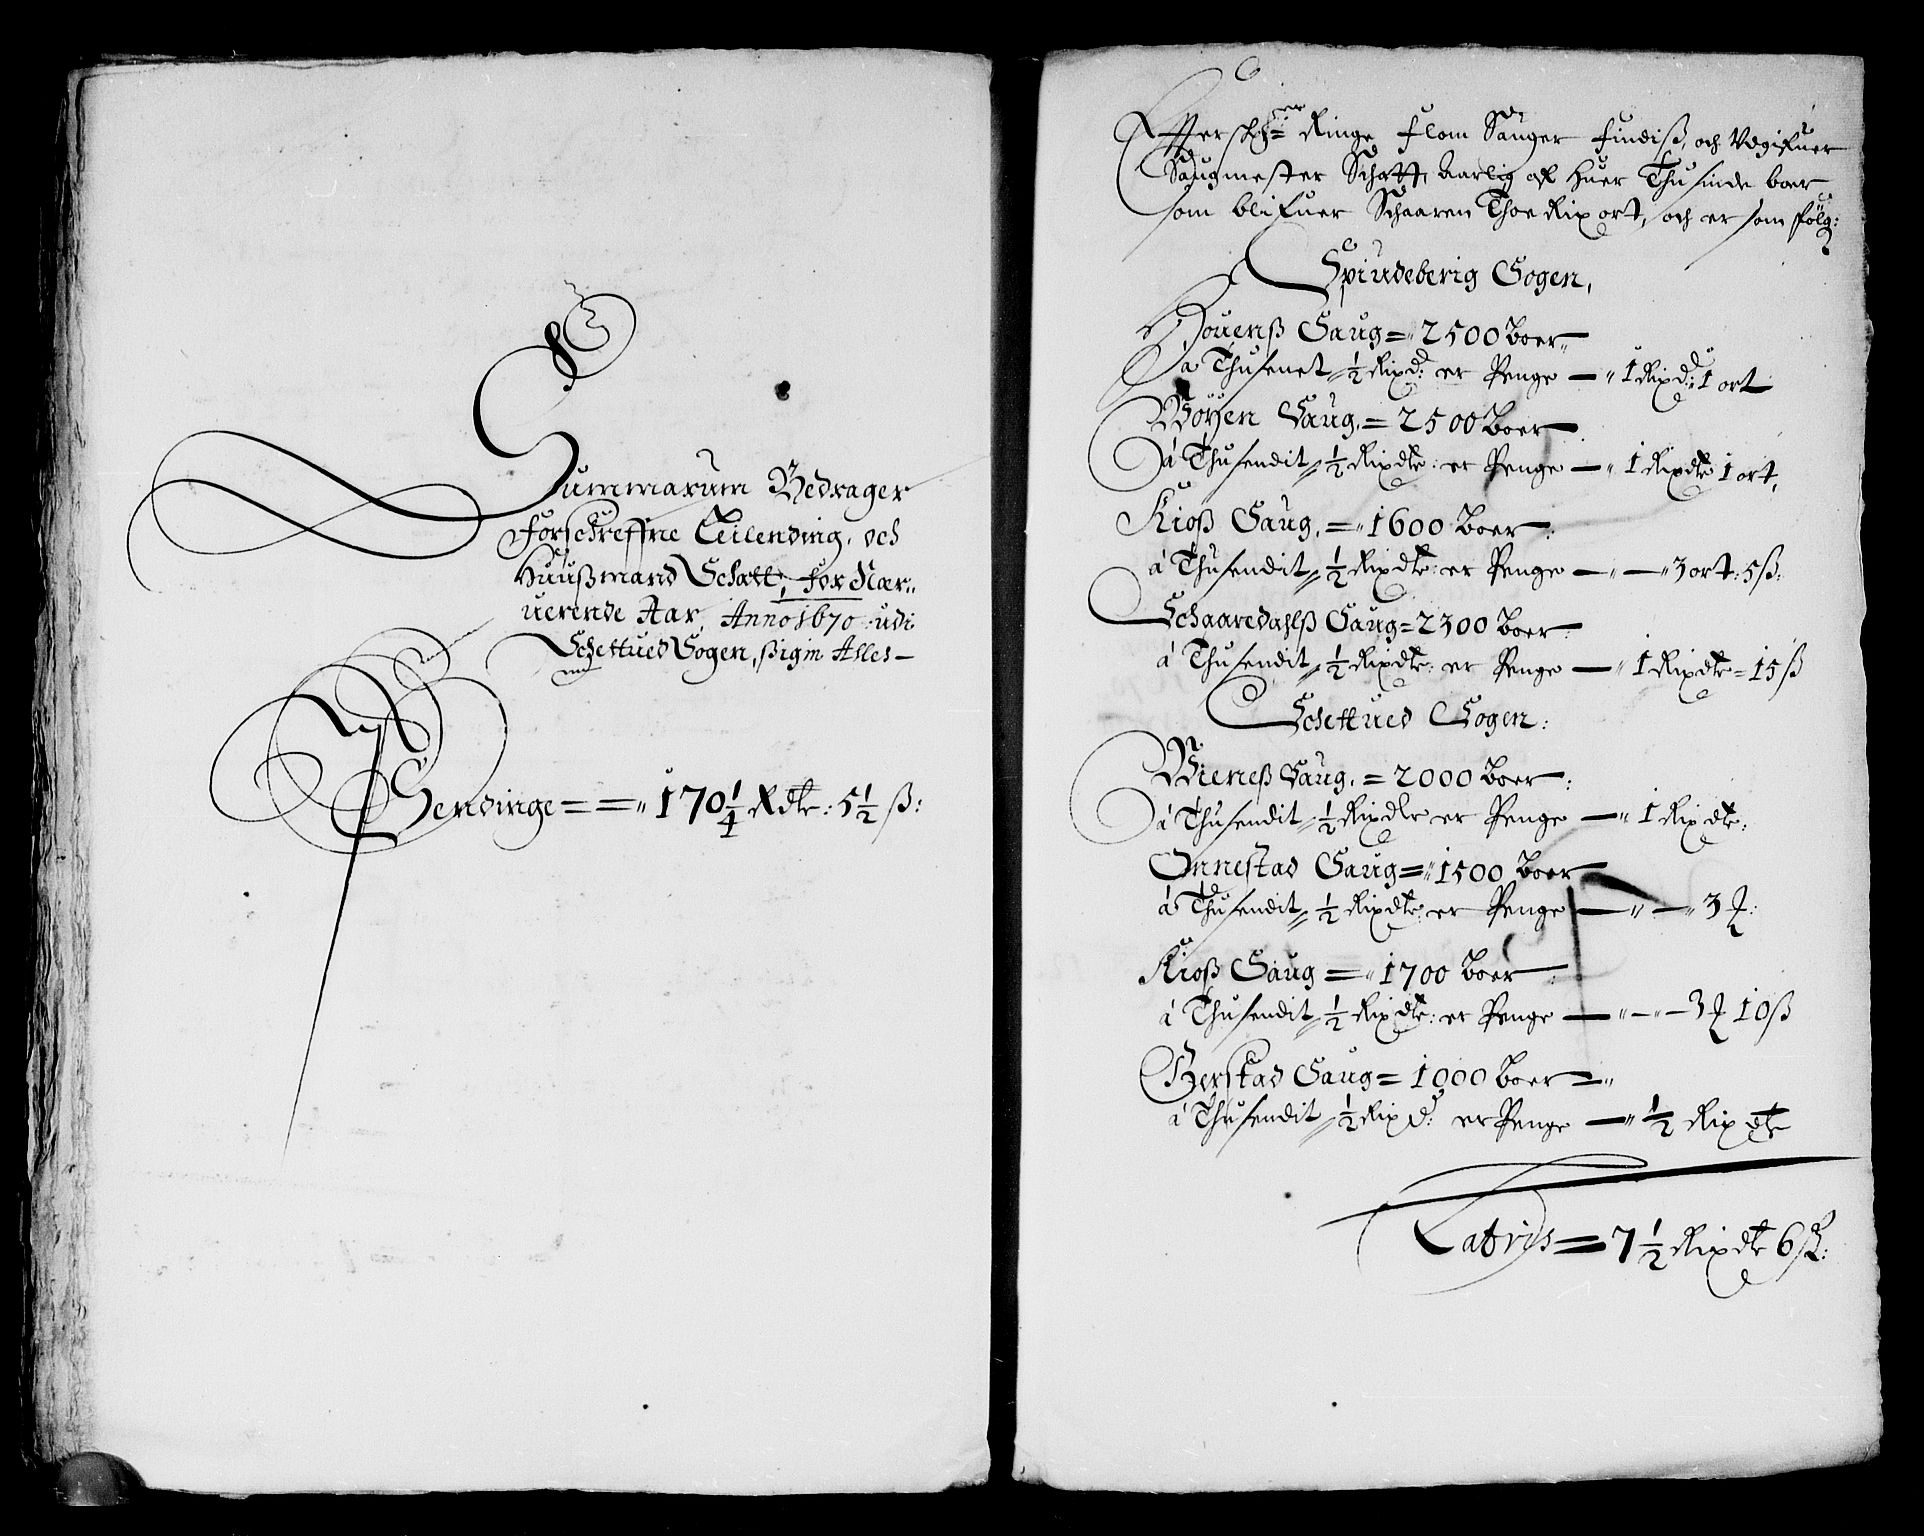 Summarum Bedrager
Forschreffne Leilending, och
Huußmand Schatt, for Nær-
uerende Aar, Anno 1670 udi
Schettued Sogen, ßigin Alles-
Pendinge == 170 1/4 Rdlr: 5 1/2 ß:
Effterschr:ne Ringe Flom Sauger findiß, och Udgifuer
Saugmester Schatt, Aarlig af huer Thusinde boer
som blifuer Schaaren Thoe Rix ort, och er som følg:
Spiudeberig Sogen,
Houenß Saug = 2500 boer
a Thusenet 1/2 Rixd: er Penge — 1 Rixd: 1 ort
Böÿen Saug, = 2500 boer
á Thusendit 1/2 Rixdlr: er Penge — 1 Rixdlr 1 ort,
Kioß Saug, = 1600 boer:
á Thusendit 1/2 Rixdlr: er Penge — — 3 ort: 5 ß:
Schaaredahlß Saug = 2300 boer:
á Thusendit 1/2 Rixdlr: er Penge — 1 Rixdlr = 15 ß
Schettued Sogen:
Wieneß Saug, = 2000 boer:
á Thusendit 1/2 Rixdlr er Penge — 1 Rixdlr:
Onnestad Saug = 1500 boer
á Thusendit 1/2 Rixdlr: er Penge — — 3 ƺ:
Kioß Saug = 1700 boer:
á Thusendit 1/2 Rixdlr: er Penge — — 3 ƺ 10 ß
Gerstad Saug = 1000 boer =
á Thusendit 1/2 Rixd: er Penge — 1/2 Rixdlr
Latris = 7 1/2 Rixdlr 6 ß: